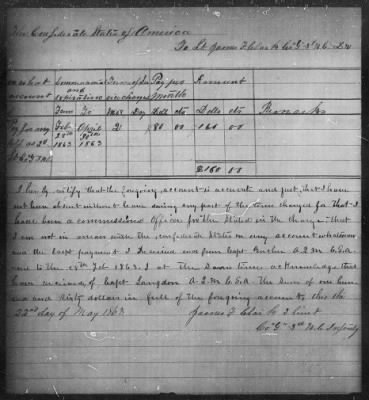 The Confederate States of America
To Lt James F Clark Co "G" 3d N.C. Dr
on what account | Commencing and expiration | Time of Service charged | Pay per Month | Amount | Remarks
From | To | Mos | Day | Dolls | cts | Dolls | cts
Pay for my | Feb | April | 2 | 80 | 00 | 160 | 00
28th | 30th
1863 | 1863
$160 00
I hereby certify that the foregoing account is accurate and just, that I have
not been absent without leave during any part of the time charged for that I
have been a commissioned Officer for the Stated in the Charge that
I am not in arrears with the Confederate States on any account whatever
and the last payment I received was from Capt. A.Q.M. C.S.A.
and to the 28th Feb 1863. I at the Same time acknowledge that
have received of Capt Langdon A.Q.M C.S.A the Sum of one hun
dred and Sixty dollars in full of the foregoing account this the
22nd day of May 1863
James F Clark 2 Lieut
Co "G" 3rd N.C Infantry